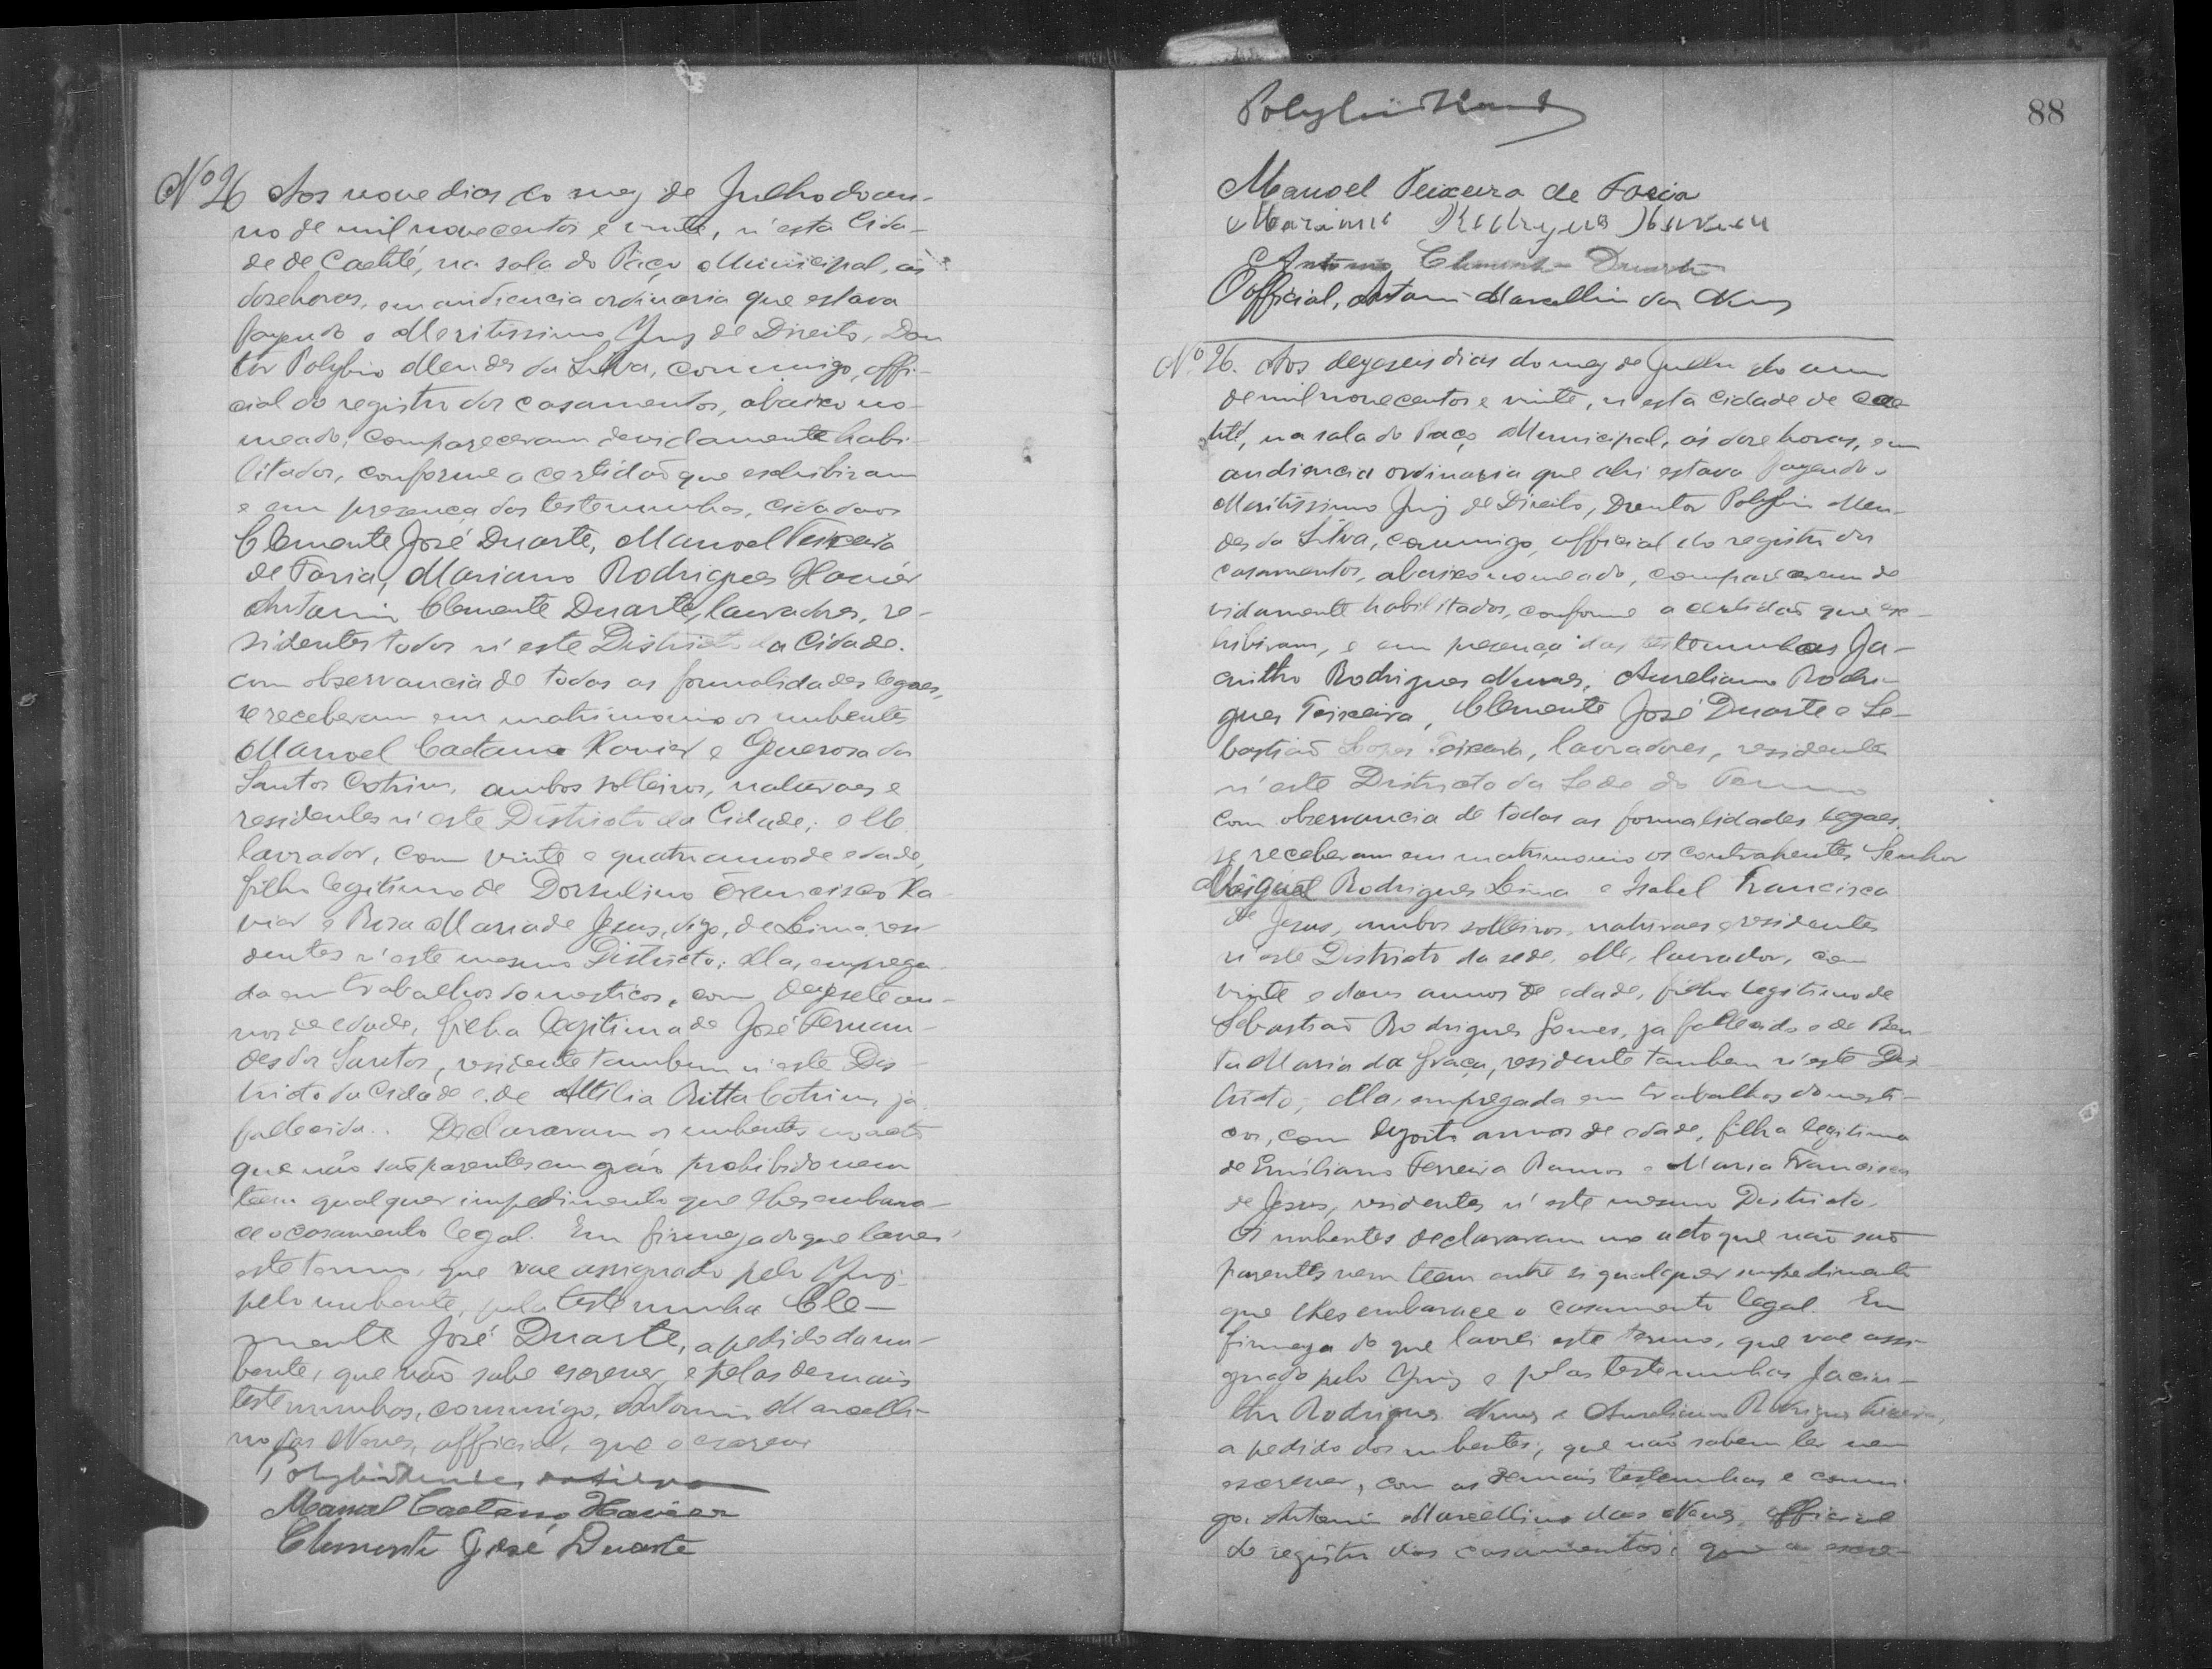 Nº 26 Aos nove dias do mez de Julho do an-
no de mil novecentos e vinte, n'esta Cida-
de de Caetité, na sala do Paço Municipal, ás
doze horas, em audiencia ordinaria que estava
fazendo o Meritissimo Juiz de Direito, Dou
tor Polybio Mendes da Silva, commigo, offi-
cial do registro dos casamentos, abaixo no-
meado, compareceram devidamente habi-
litados, conforme a certidaõ que exhibiram
e em presença das testemunhas, cidadaos
Clemente José Duarte, Manoel Teixeira
de Faria, Mariano Rodrigues Xavier
Antonio Clemente Duarte, lavradores, re-
sidentes todos n'este Districto da Cidade.
com observancia de todas as formalidades legaes,
se receberam em matrimonio os nubentes
Manoel Caetano Xavier e Generosa dos
Santos Cotrim, ambos solteiros, naturaes e
residentes n'este Districto da Cidade; elle
lavrador, com vinte e quatro annos de edade,
filho legitimo de Dorsulino Francisco Xa
vier e Rosa Maria de Jesus, digo, de Lima, resi-
dentes n'este mesmo Districto; ella, emprega-
da em trabalhos domesticos, com dezesete an-
nos de edade, filha legitima de José Fernan-
des dos Santos, residente tambem n'este Dis-
tricto da Cidade e de Attilia Ritta Cotrim, ja
fallecida. Declararam os nubentes no acto
que não saõ parentes em gráo prohibido nem
teem qualquer impedimento que lhes embara-
ce o casamento legal. Em firmeza do que lavrei
este termo, que vae assignado pelo Juiz,
pelo nubente, pela testemunha Cle-
mente José Duarte, a pedido da nu-
bente, que não sabe escrever, e pelas demais
testemunhas, commigo, Antonio Marcelli-
no das Neves, official, que o escrevi
Polybio Mendes da Silva
Manoel Caetano Xavier
Clemente José Duarte
88
Polybio Mendes
Manoel Teixeira de Faria
Mariano Rodrigues Xavier
Antonio Clemente Duarte
O official, Antonio Marcellino das Neves
Nº 26. Aos dezeseis dias do mez de Julho do anno
de mil novecentos e vinte, n'esta Cidade de Cae
tité, na sala do Paço Municipal, ás doze horas, em
audiencia ordinaria que ahi estava fazendo o
Meritissimo Juiz de Direito, Doutor Polybio Men-
des da Silva, commigo, official do registro dos
casamentos, abaixo nomeado, compareceram de
vidamente habilitados, conforme a certidaõ que ex-
hibiram, e em presença das testemunhas Ja-
cintho Rodrigues Nunes, Aureliano Rodri-
gues Teixeira, Clemente José Duarte e Se-
bastiaõ Lopes Teixeira, lavradores, residentes
n'este Districto da Sede do Termo
com observancia de todas as formalidades legaes,
se receberam em matrimonio os contrahentes Senhor
Miguel Rodrigues Lima e Isabel Francisca
de Jesus, ambos solteiros, naturaes e residentes
n'este Districto da sede, elle, lavrador, com
vinte e dous annos de edade, filho legitimo de
Sebastiaõ Rodrigues Gomes, ja fallecido e de Ben-
ta Maria da Graça, residente tambem n'este Dis
tricto; ella, empregada em trabalhos domesti-
cos, com dezoito annos de edade, filha legitima
de Emiliano Ferreira Ramos e Maria Francisca
de Jesus, residentes n'este mesmo Districto.
Os nubentes declararam no acto que não saõ
parentes nem teem entre si qualquer impedimento
que lhes embarace o casamento legal. Em
firmeza do que lavrei este termo, que vae assi-
gnado pelo Juiz e pelas testemunhas Jacin-
tho Rodrigues Nunes e Aureliano Rodrigues Teixeira,
a pedido dos nubentes, que não sabem ler nem
escrever, com as demais testemunhas e commi
go, Antonio Marcellino das Neves, official
do registro dos casamentos, que o escre-